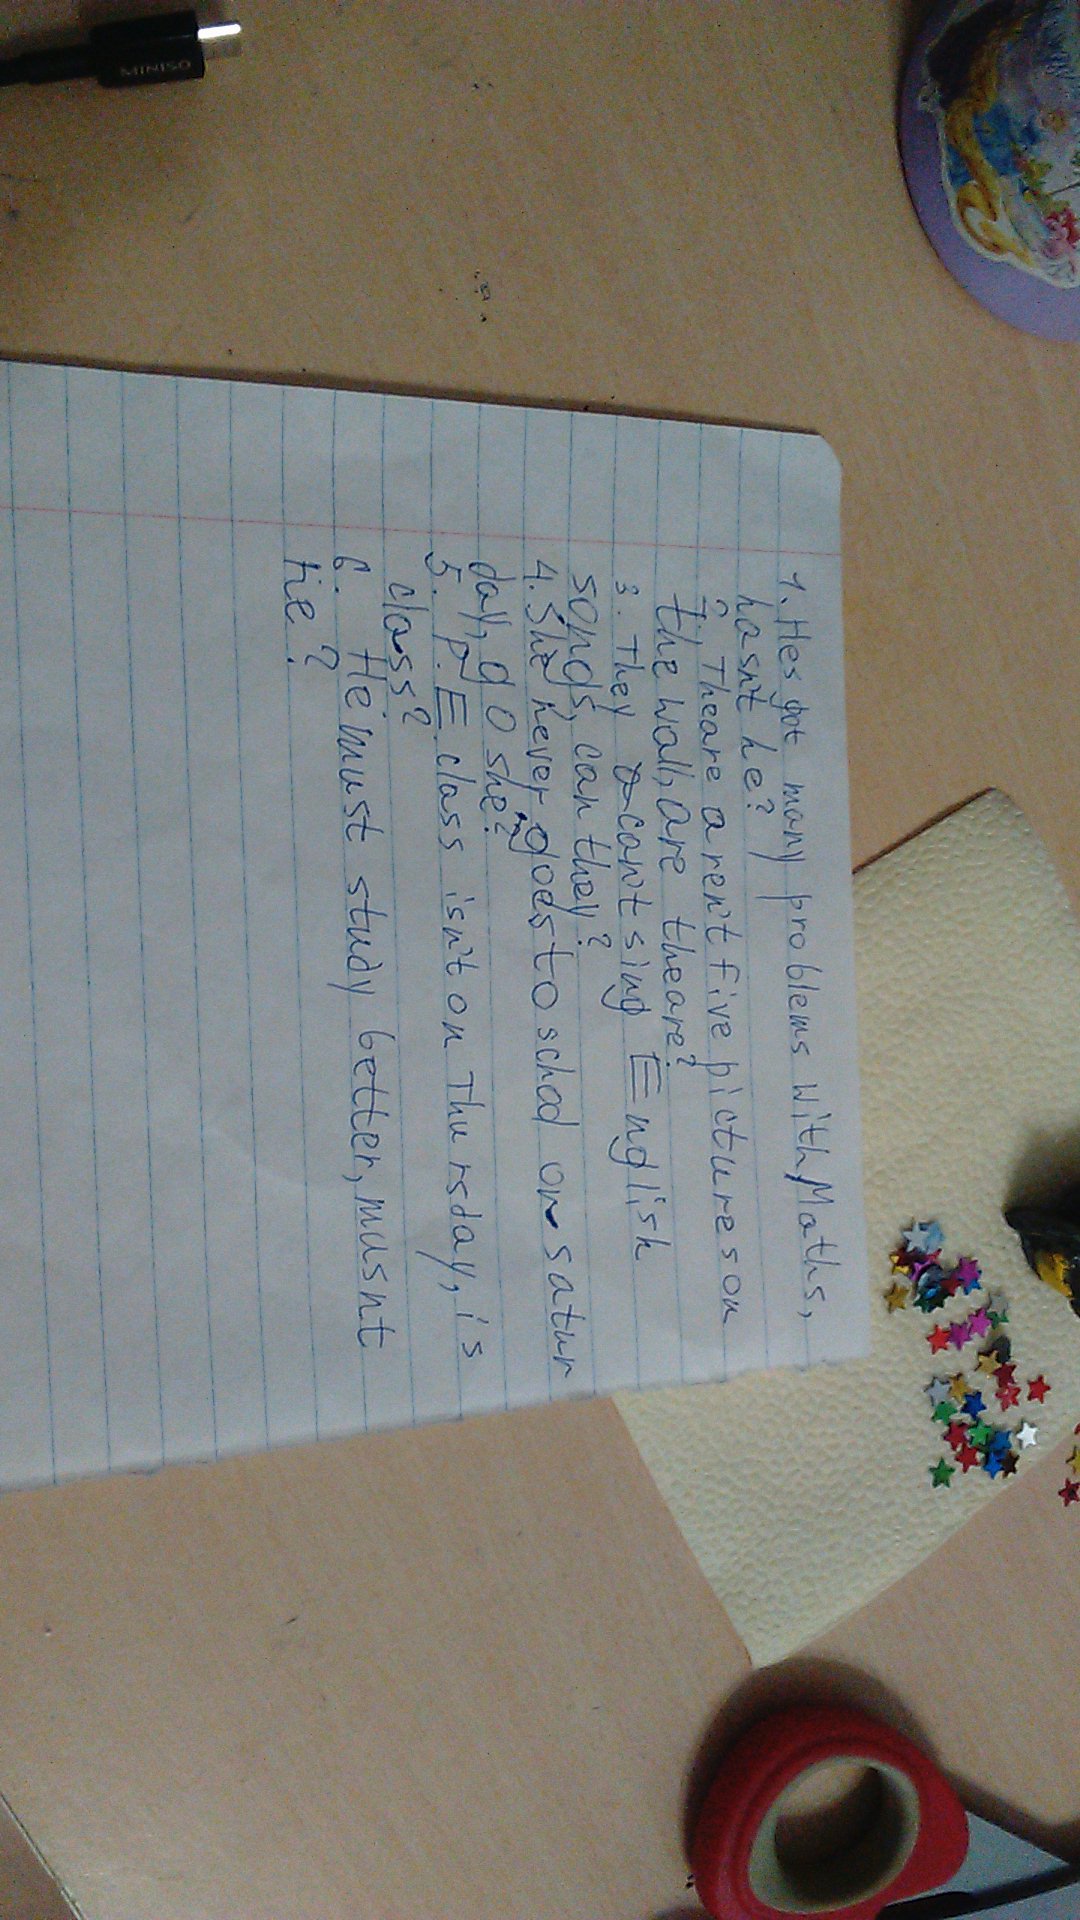 MINISO
1. Hes got many problems with Maths,
hasn't he?
2. Theare aren't five pictures on
the wall, are theare?
3. They can't sing English
songs, can they?
4. She never goes to school on satur
day, go she?
5. P.E class isn't on Thursday, is
class?
6. He must study better, musnt
tie?